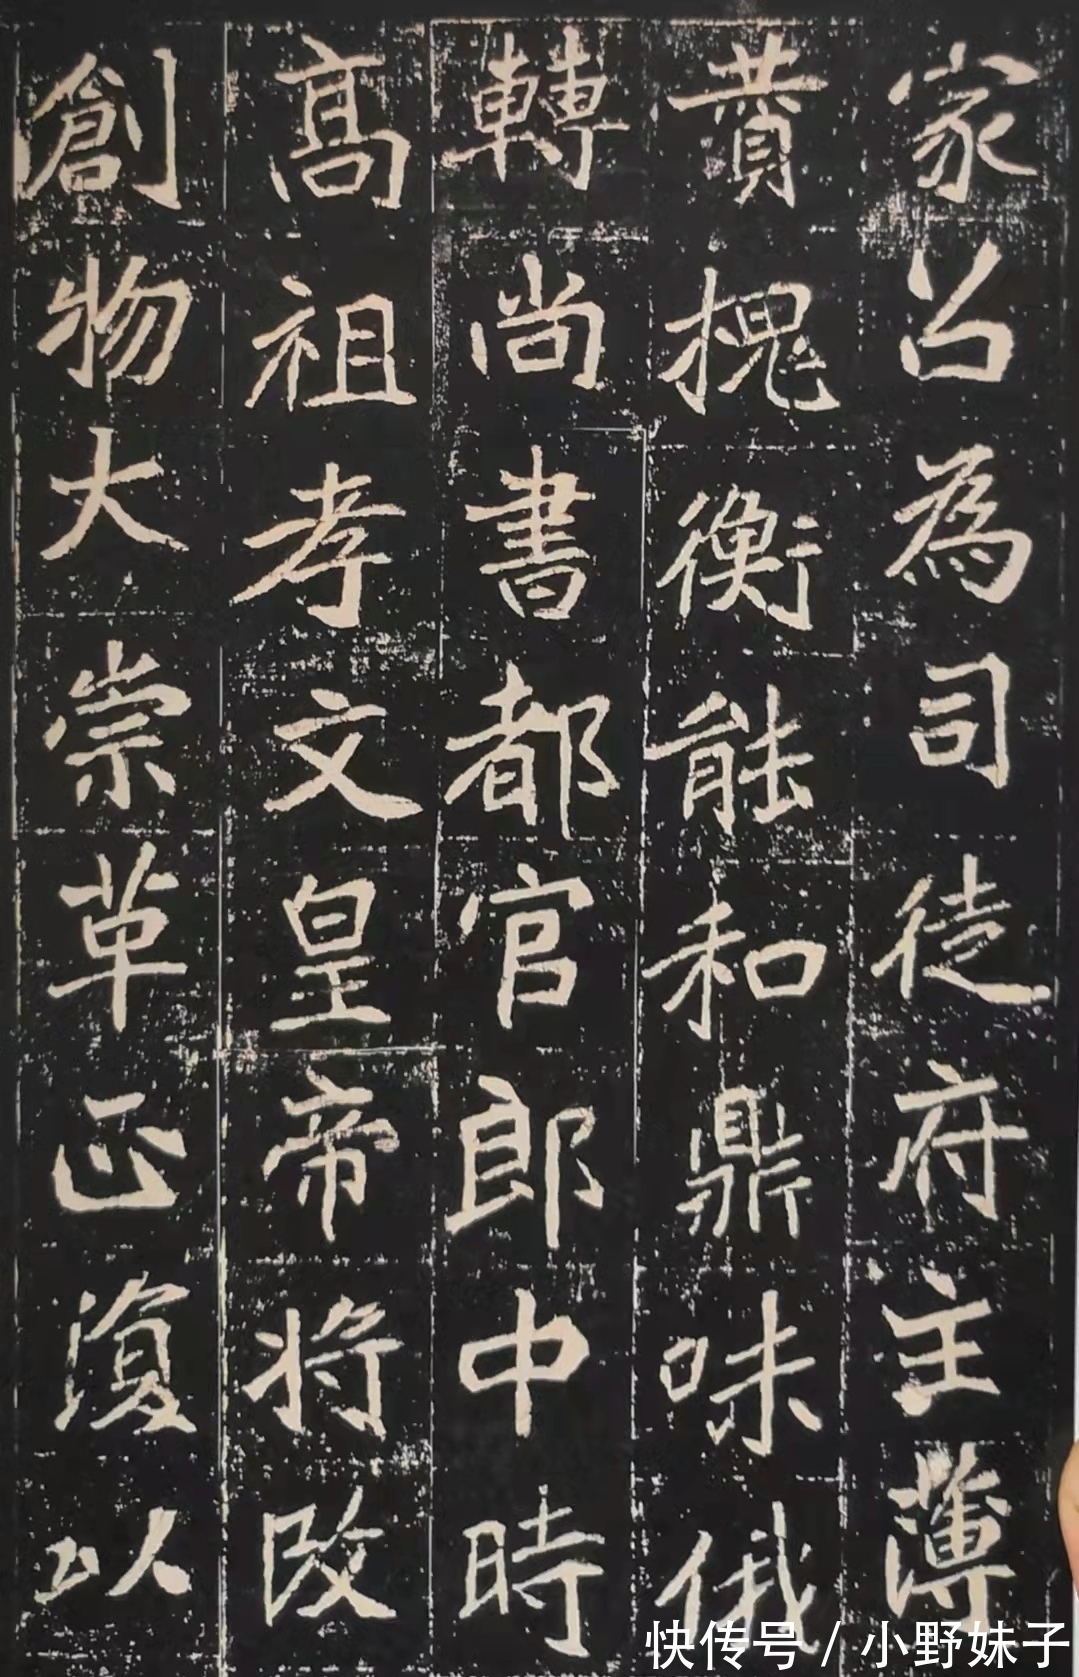 家召為司徒府主薄
賛槐衡能和鼎味俄
轉尚書都官郎中時
高祖孝文皇帝将改
創物大崇革正復以
快传号/小野妹子